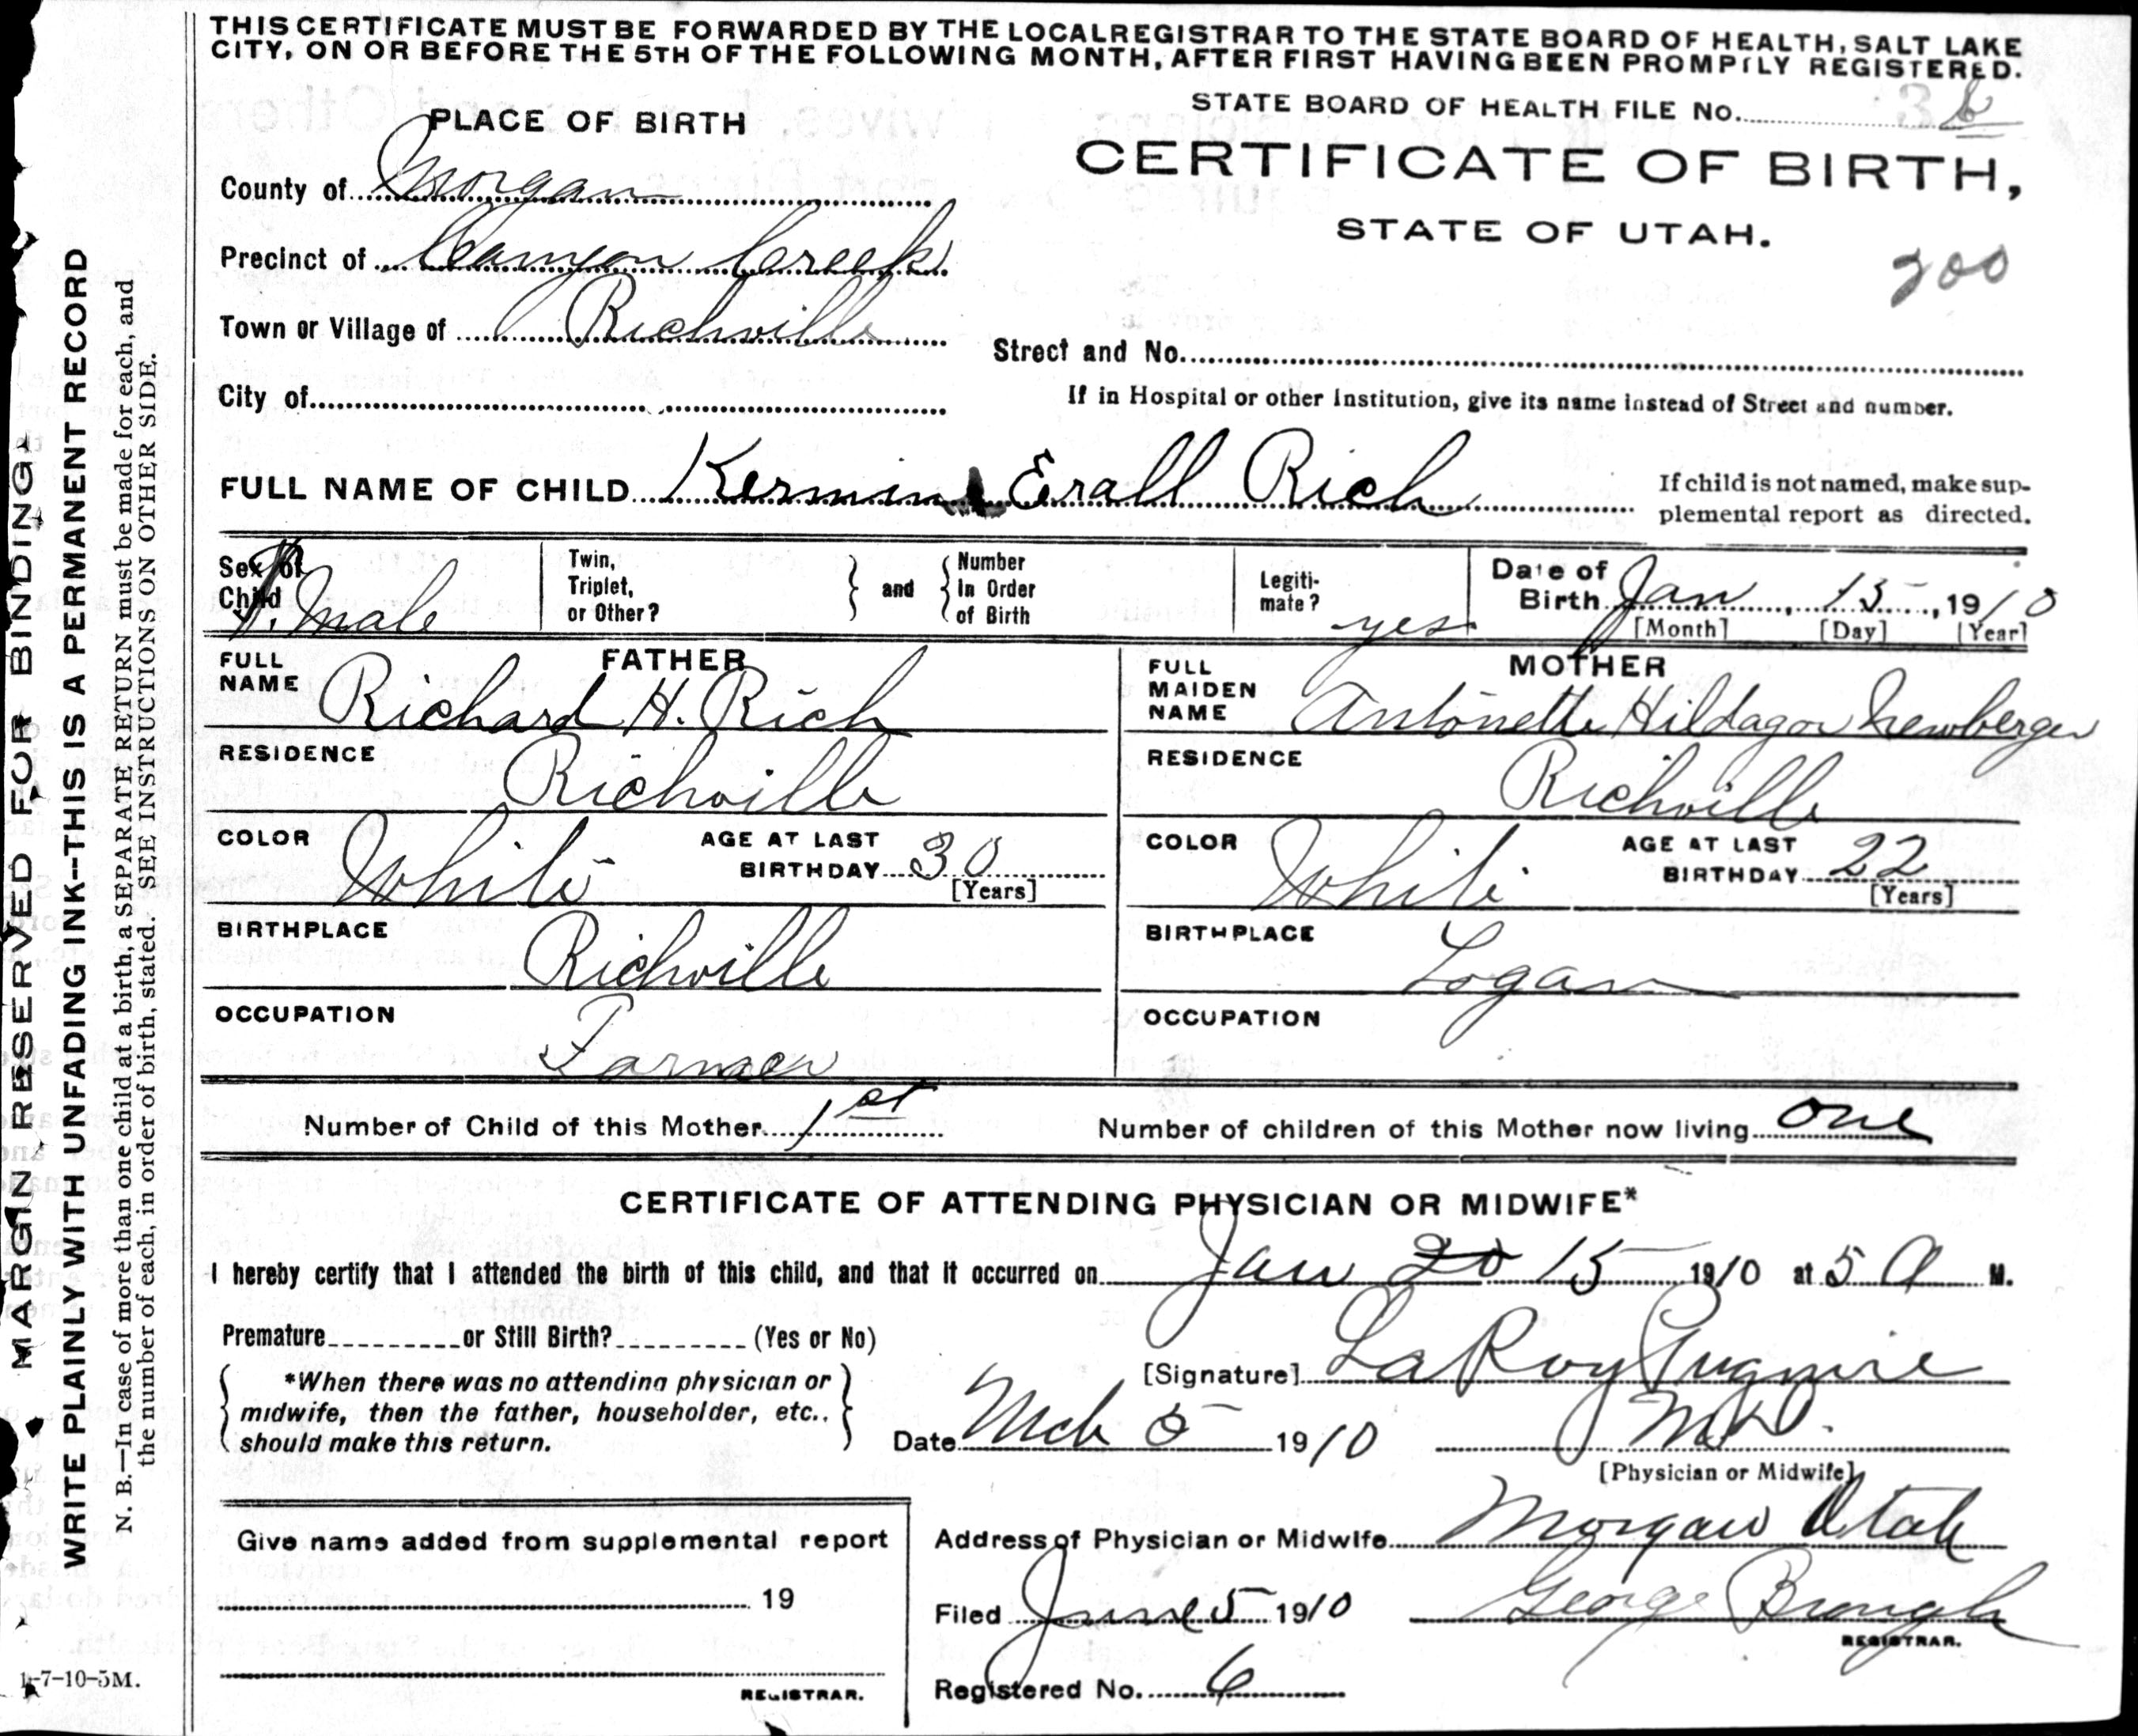 THIS CERTIFICATE MUST BE FORWARDED BY THE LOCALREGISTRAR TO THE STATE BOARD OF HEALTH, SALT LAKE
CITY, ON OR BEFORE THE 5TH OF THE FOLLOWING MONTH, AFTER FIRST HAVING BEEN PROMPTLY REGISTERED.
STATE BOARD OF HEALTH FILE No.
PLACE OF BIRTH
CERTIFICATE OF BIRTH,
STATE OF UTAH.
200
County of Morgan
Precinct of Canyon Creek
Town or Village of Richville
Street and No.
City of
If in Hospital or other Institution, give its name instead of Street and number.
FULL NAME OF CHILD Kermin Erall Rich
If child is not named, make sup-
plemental report as directed.
Sex of
Child Male
Twin,
Triplet,
or Other?
and
Number
In Order
of Birth
Legiti-
mate? yes
Date of
Birth Jan 15, 1910
[Month] [Day] [Year]
FATHER
FULL
NAME Richard H. Rich
RESIDENCE Richville
COLOR White
AGE AT LAST
BIRTHDAY 30
[Years]
BIRTHPLACE Richville
OCCUPATION Farmer
MOTHER
FULL
MAIDEN
NAME Antonette Hildagar Newberger
RESIDENCE Richville
COLOR White
AGE AT LAST
BIRTHDAY 22
[Years]
BIRTHPLACE Logan
OCCUPATION
Number of Child of this Mother 1st
Number of children of this Mother now living one
CERTIFICATE OF ATTENDING PHYSICIAN OR MIDWIFE*
I hereby certify that I attended the birth of this child, and that it occurred on Jan 20 15 1910 at 5 A M.
Premature or Still Birth? (Yes or No)
*When there was no attending physician or
midwife, then the father, householder, etc.,
should make this return.
[Signature] LaRoy Pugmire
Date Mch 5 1910
M.D.
[Physician or Midwife]
Give name added from supplemental report
19
REGISTRAR.
Address of Physician or Midwife Morgan Utah
Filed June 5 1910
George Brough
REGISTRAR.
Registered No. 6
MARGIN RESERVED FOR BINDING
WRITE PLAINLY WITH UNFADING INK--THIS IS A PERMANENT RECORD
N. B.—In case of more than one child at a birth, a SEPARATE RETURN must be made for each, and
the number of each, in order of birth, stated. SEE INSTRUCTIONS ON OTHER SIDE.
-7-10-5M.